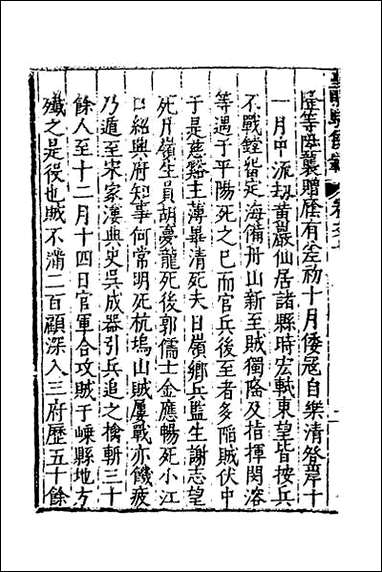 歷等每襲贈廕有差初十月倭冦自樂清登岸十
一月中流刼黃巖仙居諸縣時宏軾東望皆按兵
不戰鏜留定海備舟山新至賊獨隆及指揮閔溶
等遇于平陽死之已而官兵後至者多䧟賊伏中
于是慈谿主薄畢清死夫日嶺鄉兵監生謝志望
死斤嶺生員胡夢龍死後郭儒士金應暢死小江
口紹興府知事何常明死杭塢山賊屢戰亦饑疲
乃遁至宋家漢典史吳成器引兵追之擒斬三十
餘人至十二月十四日官軍合攻賊于嵊縣地方
殲之是役也賊不滿二百顧深入三府歷五十餘